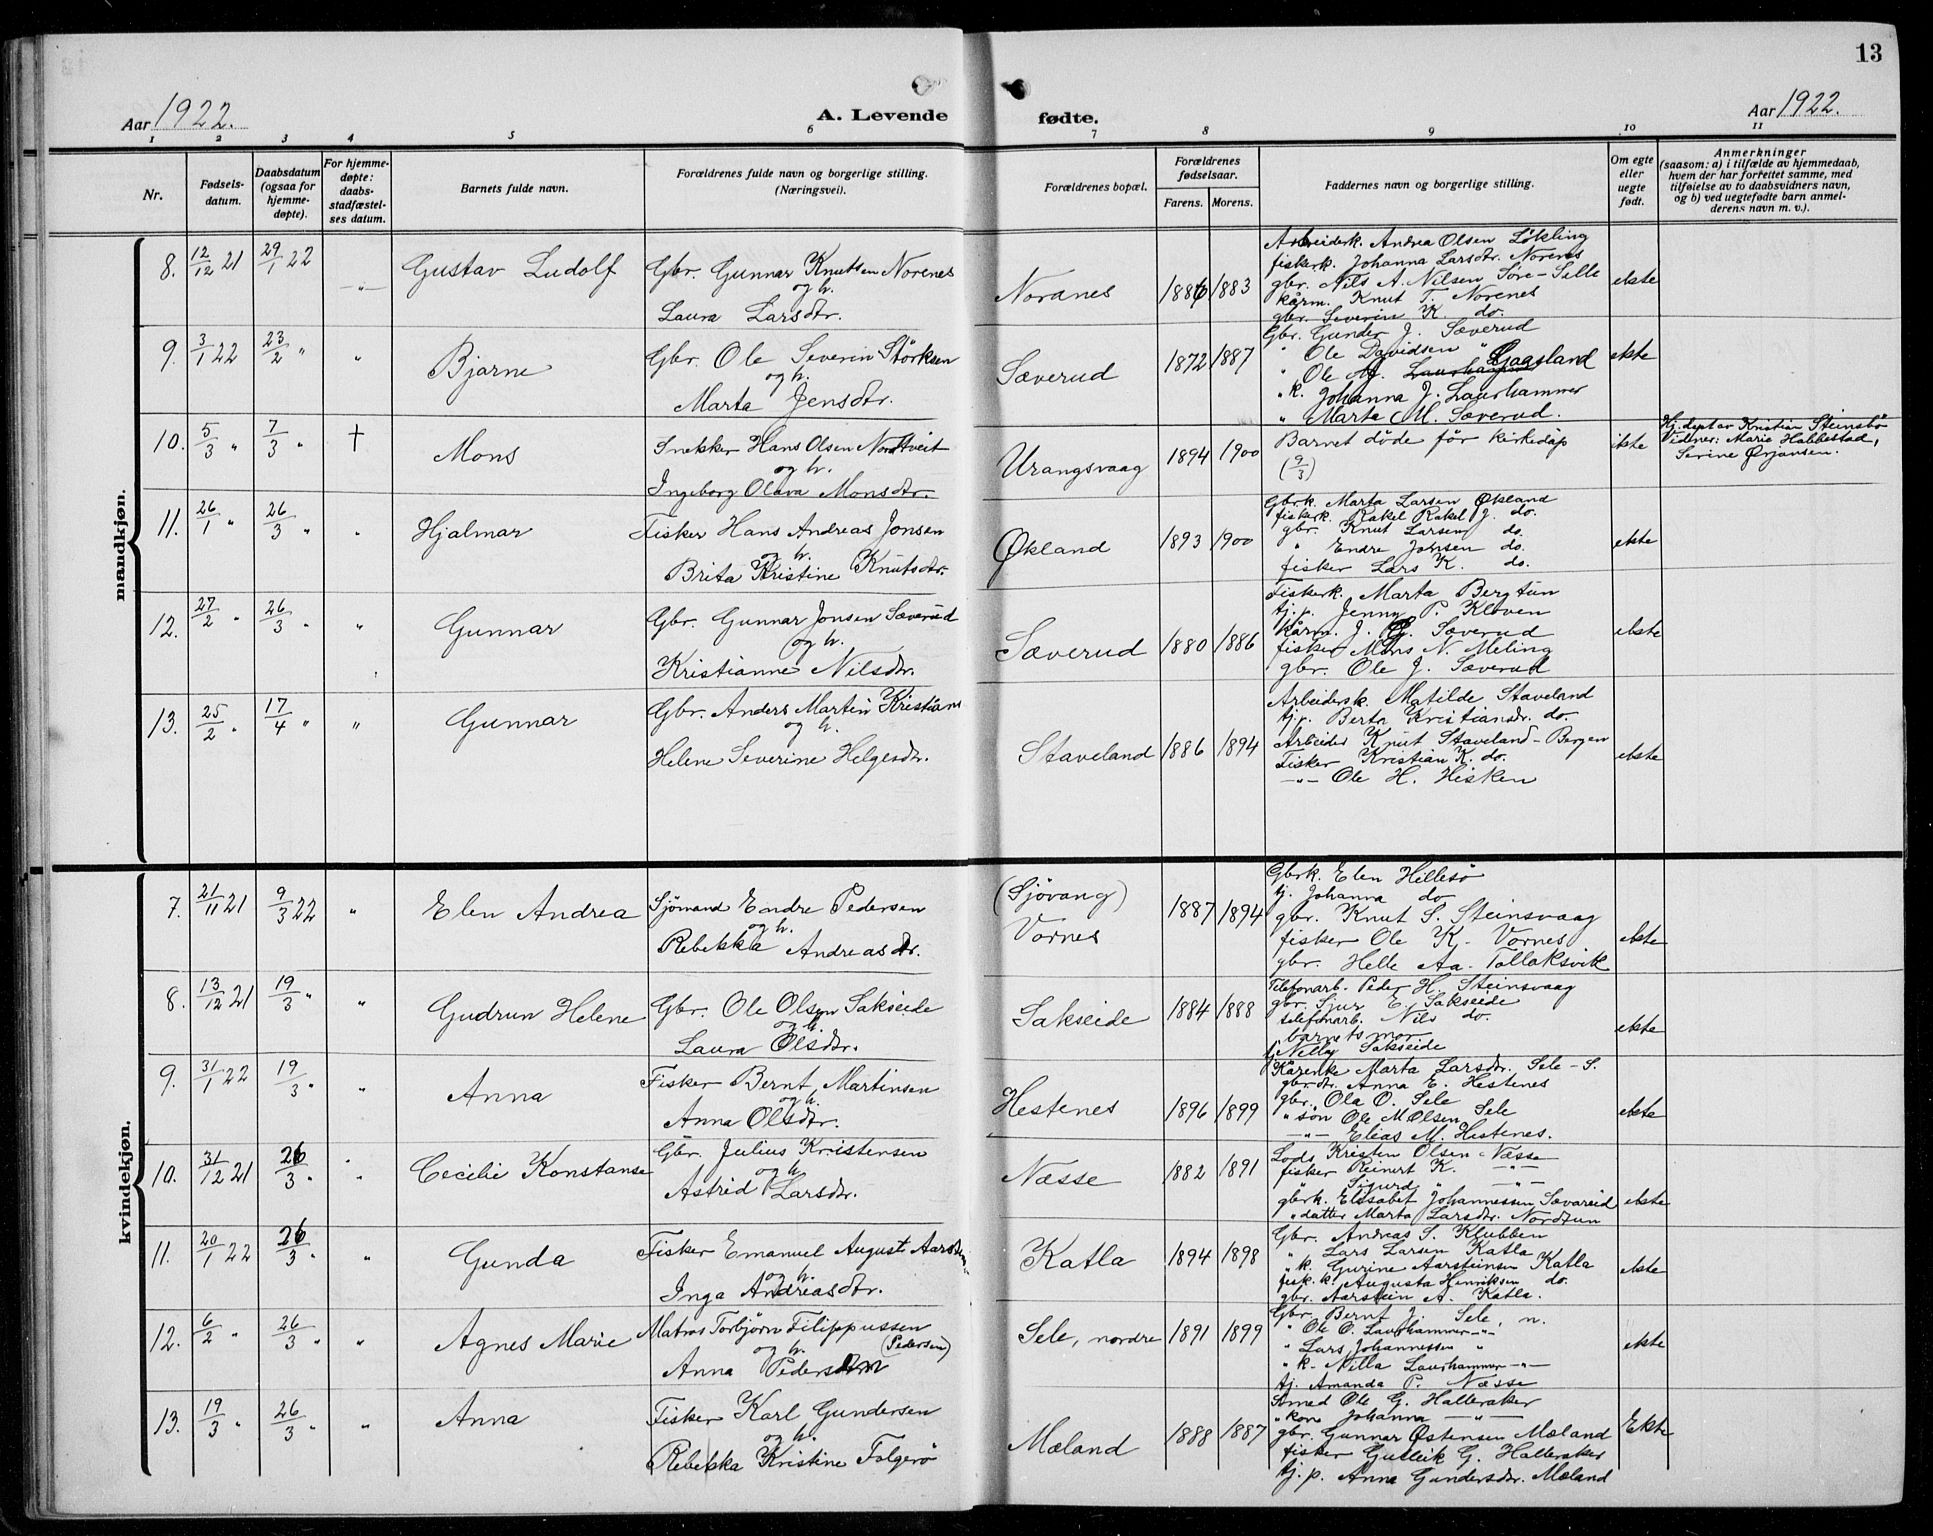 13
Aar 1922.
A. Levende fødte.
Aar 1922.
1 2 3 4 5 6 7 8 9 10 11
Nr.
Fødsels-datum.
Daabsdatum (ogsaa for hjemme-døpte).
For hjemme-døpte: daabs-stadfæstel-ses datum.
Barnets fulde navn.
Forældrenes fulde navn og borgerlige stilling. (Næringsvei).
Forældrenes bopæl.
Forældrenes fødselsaar.
Farens. Morens.
Faddernes navn og borgerlige stilling.
Om egte eller uegte født.
Anmerkninger
(saasom: a) i tilfælde av hjemmedaab,
hvem der har forrettet samme, med
tilføielse av to daabsvidners navn,
og b) ved uegtefødte barn anmel-
derens navn m. v.).
mandkjøn.
8. 12/12 21 29/1 22 —"— Gustav Ludolf
Gbr. Gunnar Knutsen Norenes
og h.
Laura Larsdtr.
Noranes 1886 1883
Arbeiderk. Andrea Olsen Lökling
fiskerk. Johanna Larsdtr. Norenes
gbr. Nils A. Nilsen Søre-Selle
kårm. Knut T. Norenes
gbr. Severin K. do.
ekte
9. 3/1 22 23/2 " " Bjarne
Gbr. Ole Severin Störksen
og h.
Marta Jensdtr.
Sæverud 1872 1887
Gbr. Gunder J. Sæverud
" Ole Davidsen "
" Ole M. Gaasland
" k. Johanna J. Laurhammer
" Marta M. Sæverud.
ekte
10. 5/3 " 7/3 " † Mons
Snekker Hans Olsen Nordtveit
og h.
Ingeborg Olava Monsdtr.
Urangsvaag 1894 1900
Barnet döde för kirkedåp
(9/3)
ekte
Hj. dept av Kristian Steinsbö
Vidner: Marie Habbestad,
Serine Ørjansen.
11. 26/1 " 26/3 " " Hjalmar
Fisker Hans Andreas Jonsen
og h.
Brita Kristine Knutsdtr.
Økland 1893 1900
Gbrk. Marta Larsen Økland
fiskerk. Rakel Rakel J. do.
gbr. Knut Larsen do.
" Endre Jonsen do.
fisker Lars K. do.
ekte
12. 27/2 " 26/3 " " Gunnar
Gbr. Gunnar Jonsen Sæverud
og h.
Kristianne Nilsdtr.
Sæverud 1880 1886
Fiskerk. Marta Bergtun
tj.p. Jenny P. Kloven
kårm. J. G. Sæverud
fisker Mons N. Meling
gbr. Ole J. Sæverud
ekte
13. 25/2 " 17/4 " " Gunnar
Gbr. Anders Martin Kristians
og h.
Helene Severine Helgesdtr.
Staveland 1886 1894
Arbeidersk. Matilde Staveland
tj.p. Berta Kristiansdr. do.
Arbeider Knut Staveland - Bergen
Fisker Kristian K. do.
—"— Ole H. Hisken
ekte
kvindekjøn.
7. 21/11 21 9/3 22 " Elen Andrea
Sjömand Endre Pedersen
og h.
Rebekka Andreasdtr.
(Sjövang)
Vornes 1887 1894
Gbrk. Elen Hillesö
tj. Johanna do
gbr. Knut S. Steinsvaag
fisker Ole K. Vornes
gbr. Helle Aa. Tollaksvik
ekte
8. 13/12 21 19/3 " " Gudrun Helene
Gbr. Ole Olsen Sakseide
og h.
Laura Olsdtr.
Sakseide 1884 1888
Telefonarb. Peder H. Steinsvaag
gbr. Sjur E. Sakseide
telefonarb. Nils do.
barnets mor
tj Nelly Sakseide
ekte
9. 31/1 22 19/3 " " Anna
Fisker Bernt Martinsen
og h.
Anna Olsdtr.
Hestenes 1896 1899
Kårenke Marta Larsdtr. Sele - S.
gbrdtr. Anna E. Hestenes
gbr. Ola O. Sele
" søn Ole M Olsen Sele
—"— Elias M. Hestenes.
ekte
10. 31/12 21 26/3 " " Cecilie Konstanse
Gbr. Julius Kristensen
og h
Astrid Larsdtr.
Næsse 1882 1891
Lods Kristen Olsen Næsse
fisker Reinert K. —"—
" Sigurd " —"—
gbrk. Elisabet Johannessen Sævareid
" datter Marta Larsdtr. Nordtun
ekte
11. 20/1 22 26/3 " " Gunda
Fisker Emanuel August Aarstein
og h.
Inga Andreasdtr.
Katla 1894 1898
Gbr. Andreas S. Klubben
" Lars Larsen Katla
" k. Gurine Aarsteinsen Katla
fisk.k. Augusta Henriksen do.
gbr. Aarstein A. Katla.
ekte
12. 6/2 " 26/3 " " Agnes Marie
Matros Torbjørn Filippussen
og h. (Pedersen)
Anna Pedersen
Sele, nordre 1891 1899
Gbr. Bernt J. Sele, n.
" Ole O. Laurhammer —"—
" Lars Johannessen "
" k. Nilla Laurhammer —"—
tj. Amanda P. Næsse
ekte
13. 19/3 " 26/3 " " Anna
Fisker Karl Gundersen
og h.
Rebekka Kristine Folgerö
Mæland 1888 1887
Smed Ole G. Halleraker
" kone Johanna —"—
gbr. Gunnar Østensen Mæland
fisker Gulleik G. Halleraker
tj.p. Anna Gundersdtr. Mæland
Ekte